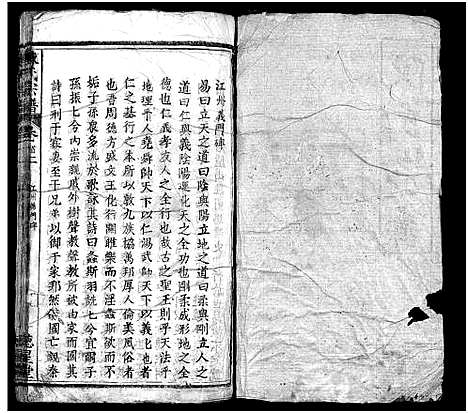 江州義門碑
易曰立天之道曰陰與陽立地之道曰柔與剛立人之
道曰仁與義陰陽運化天之全功也剛柔成形地之全
德也仁義孝友人之全行也故古之聖王則乎天法乎
地理乎人堯舜帥天下以仁湯武帥天下以義化也者
仁之基行之本所以敦九族協萬邦厚人倫美風俗者
也昔周德方盛文王化行關雎樂而不淫螽斯
振子孫衆多流於歌詠其詩曰螽斯羽詵兮宜爾子
孫振兮內崇親戚外樹聲教聲教所沾由家而國其
詩曰刑于寡妻至于兄弟以御于家邦然後國亡親秦
宗譜
卷之二
江州義門碑
堂